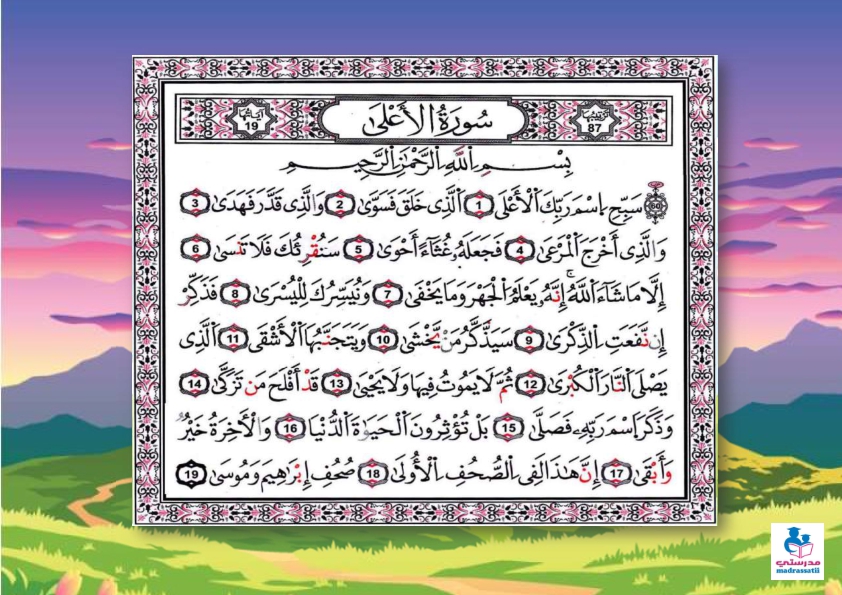 ترتيبها 87
سُورَةُ الأَعْلَىٰ
آياتها 19
بِسْمِ اِللَّهِ اِلرَّحْمَٰنِ اِلرَّحِيمِ
60 سَبِّحِ اِسْمَ رَبِّكَ اَلْأَعْلَى 1 اَلَّذِى خَلَقَ فَسَوَّىٰ 2 وَالَّذِى قَدَّرَ فَهَدَىٰ 3
وَالَّذِى أَخْرَجَ اَلْمَرْعَىٰ 4 فَجَعَلَهُۥ غُثَآءً أَحْوَىٰ 5 سَنُقْرِئُكَ فَلَا تَنسَىٰ 6
إِلَّا مَا شَآءَ اَللَّهُ إِنَّهُۥ يَعْلَمُ اُلْجَهْرَ وَمَا يَخْفَىٰ 7 وَنُيَسِّرُكَ لِلْيُسْرَىٰ 8 فَذَكِّرْ
إِن نَّفَعَتِ اِلذِّكْرَىٰ 9 سَيَذَّكَّرُ مَنْ يَّخْشَىٰ 10 وَيَتَجَنَّبُهَا اَلْأَشْقَى 11 اَلَّذِى
يَصْلَى اَلنَّارَ اَلْكُبْرَىٰ 12 ثُمَّ لَا يَمُوتُ فِيهَا وَلَا يَحْيَىٰ 13 قَدْ أَفْلَحَ مَن تَزَكَّىٰ 14
وَذَكَرَ اَسْمَ رَبِّهِۦ فَصَلَّىٰ 15 بَلْ تُؤْثِرُونَ اَلْحَيَوٰةَ اَلدُّنْيَا 16 وَالْأَخِرَةُ خَيْرٌ
وَأَبْقَىٰ 17 إِنَّ هَٰذَا لَفِى اِلصُّحُفِ اِلْأُولَىٰ 18 صُحُفِ إِبْرَاهِيمَ وَمُوسَىٰ 19
مدرستي
madrassatii